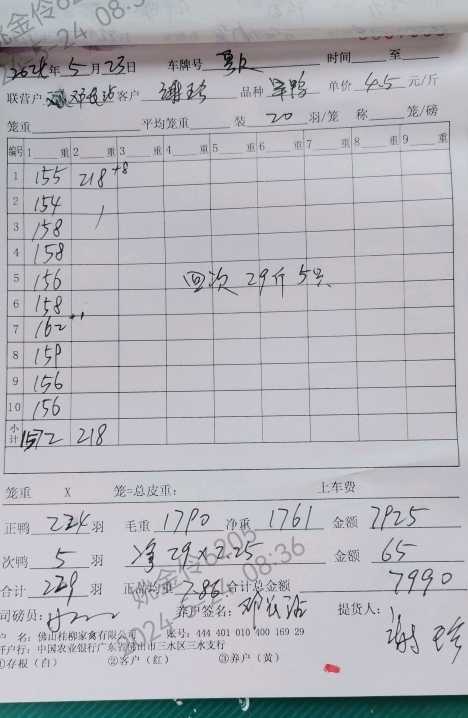 2024年5月23日 车牌号 时间 至
联营户 客户 品种 单价 4.5 元/斤
笼重 平均笼重 装 20 羽/笼 称 笼/磅
编号 1 重 2 重 3 重 4 重 5 重 6 重 7 重 8 重 9 重
1 155 218 +8
2 154
3 158
4 158
5 156 回次 29斤 5只
6 158
7 162
8 159
9 156
10 156
小计 1572 218
笼重 X 笼=总皮重: 上车费
正鸭 224 羽 毛重 1790 净重 1761 金额 7925
次鸭 5 羽 净 29×2.25 金额 65
合计 229 羽 正品均重 7.86 合计总金额 7990
司磅员: 养户签名: 邓 提货人: 谢
户 名: 佛山桂柳家禽有限公司 账号: 444 401 010 400 169 29
开户行: 中国农业银行广东省佛山市三水区三水支行
①存根（白） ②客户（红） ③养户（黄）
姚金伶6205
2024-05-24 08:36